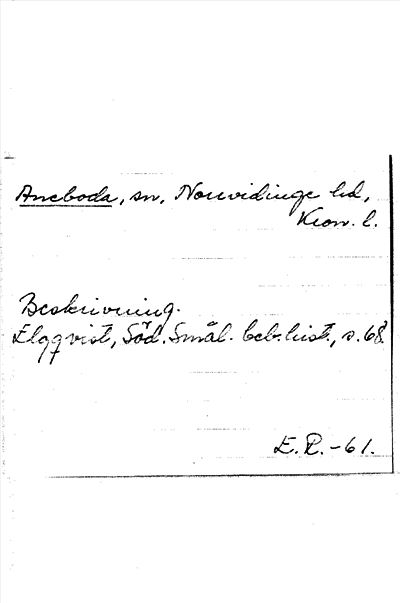 Aneboda, sn, Norrvidinge hd,
Kron. l.
Beskrivning.
Elgqvist, Söd. Smål. beb. hist., s. 68.
E. R. -61.